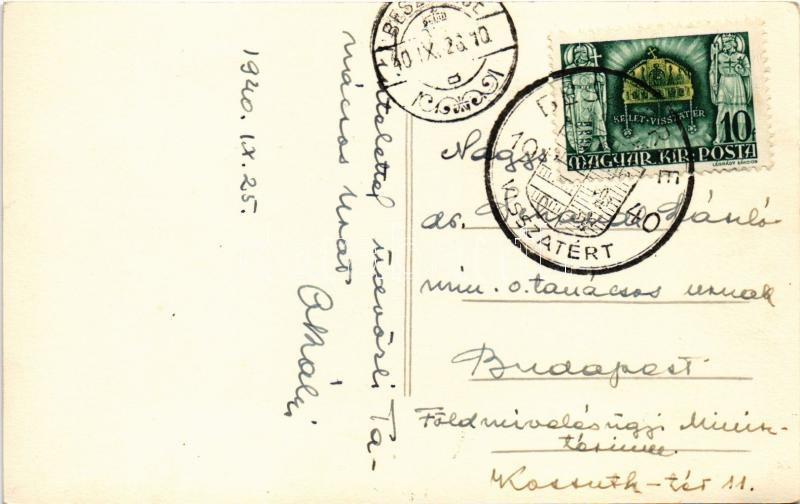 1940. IX. 25.
tisztelettel üdvözli Ta-
nácsos Urat
BESZTERCE
40 IX. 26. 10
KELET-VISSZATÉR
10
MAGYAR KIR. POSTA
LÉGRÁDY SÁNDOR
BESZTERCE
1940
VISSZATÉRT
Nagys.
dr. László
min. o. tanácsos urnak
Budapest
Földmivelésügyi Minisz-
térium
Kossuth-tér 11.